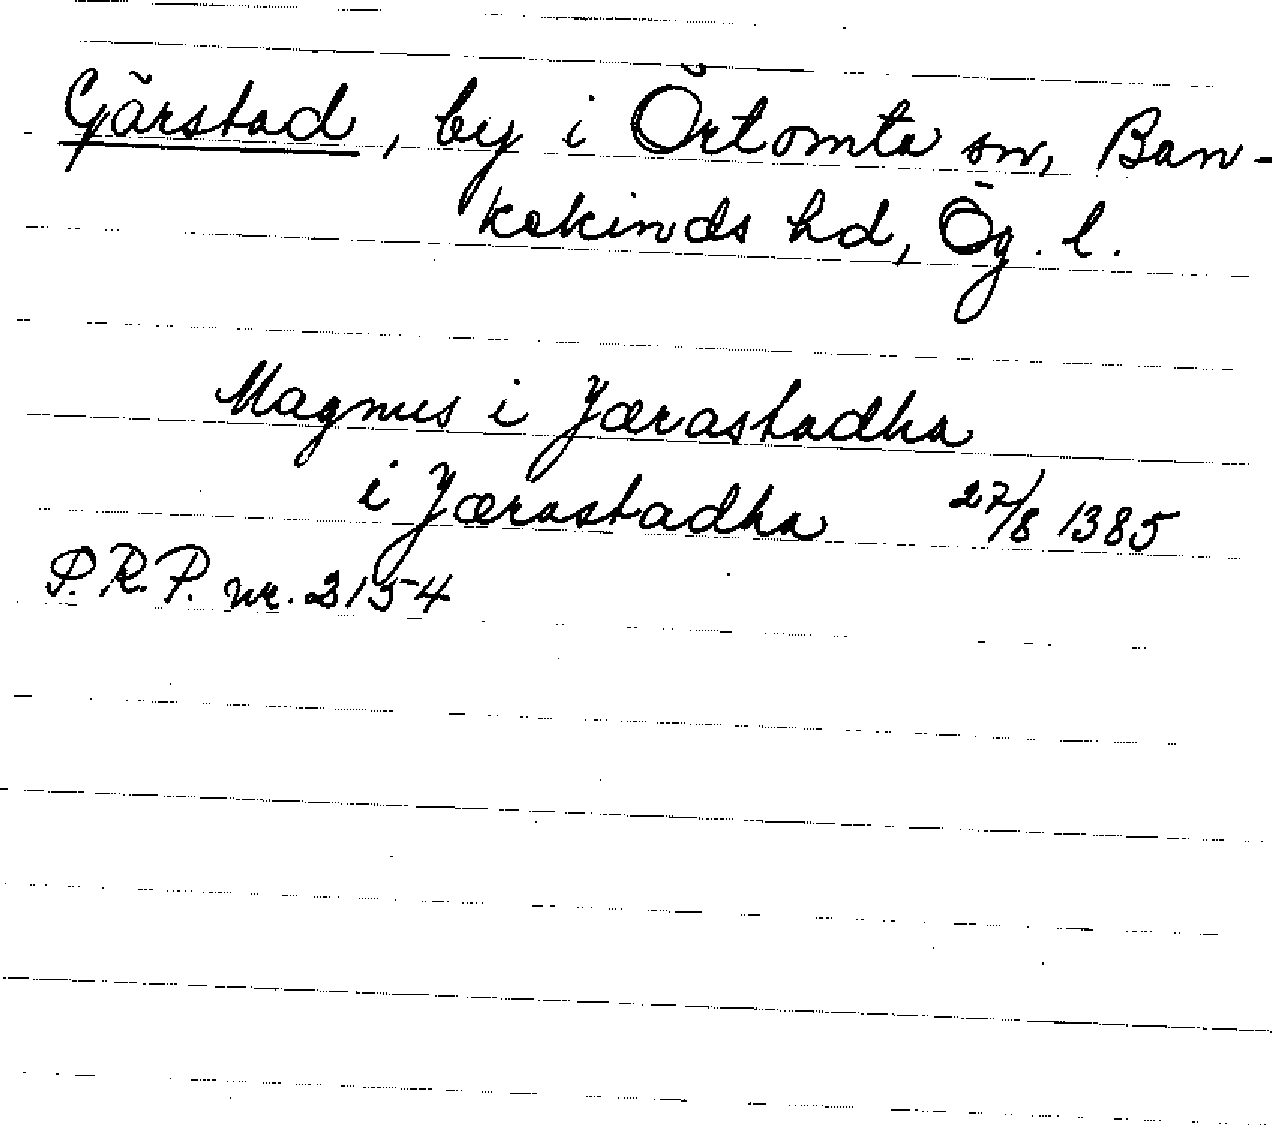 Gärstad, by i Örtomta sn, Ban-
kekinds hd, Ög. l.
Magnus i Jærastadha
i Jærastadha 27/8 1385
P.R.P. nr. 2154